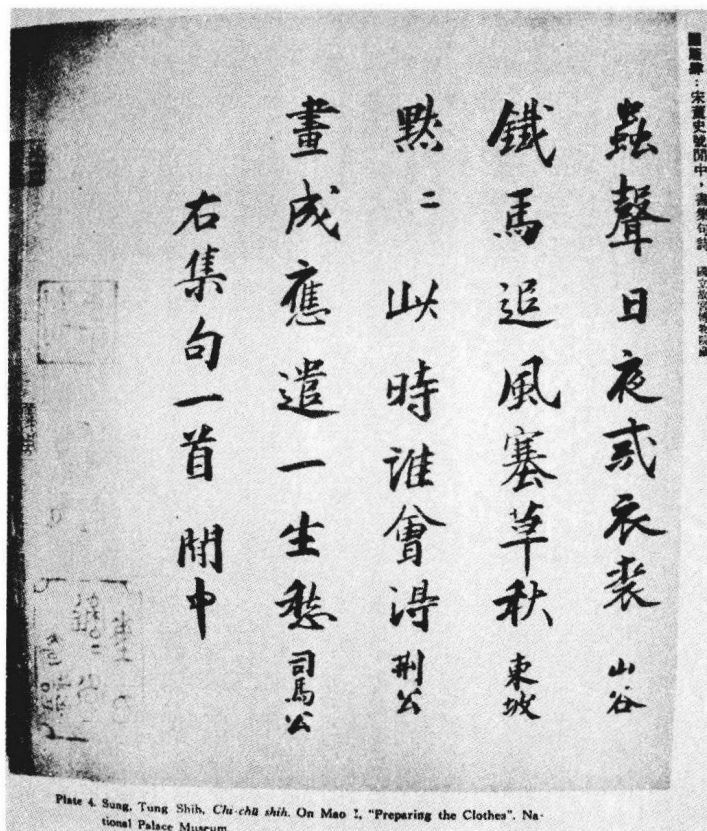 圖版肆：宋董史號閒中，書集句詩 國立故宮博物院藏
蟲聲日夜戒衣裘 山谷
鐵馬追風塞草秋 東坡
黙二此時誰會得 荆公
畫成應遣一生愁 司馬公
右集句一首 閒中
Plate 4. Sung, Tung Shih, Chi-chü shih. On Mao , "Preparing the Clothes". Na-
tional Palace Museum